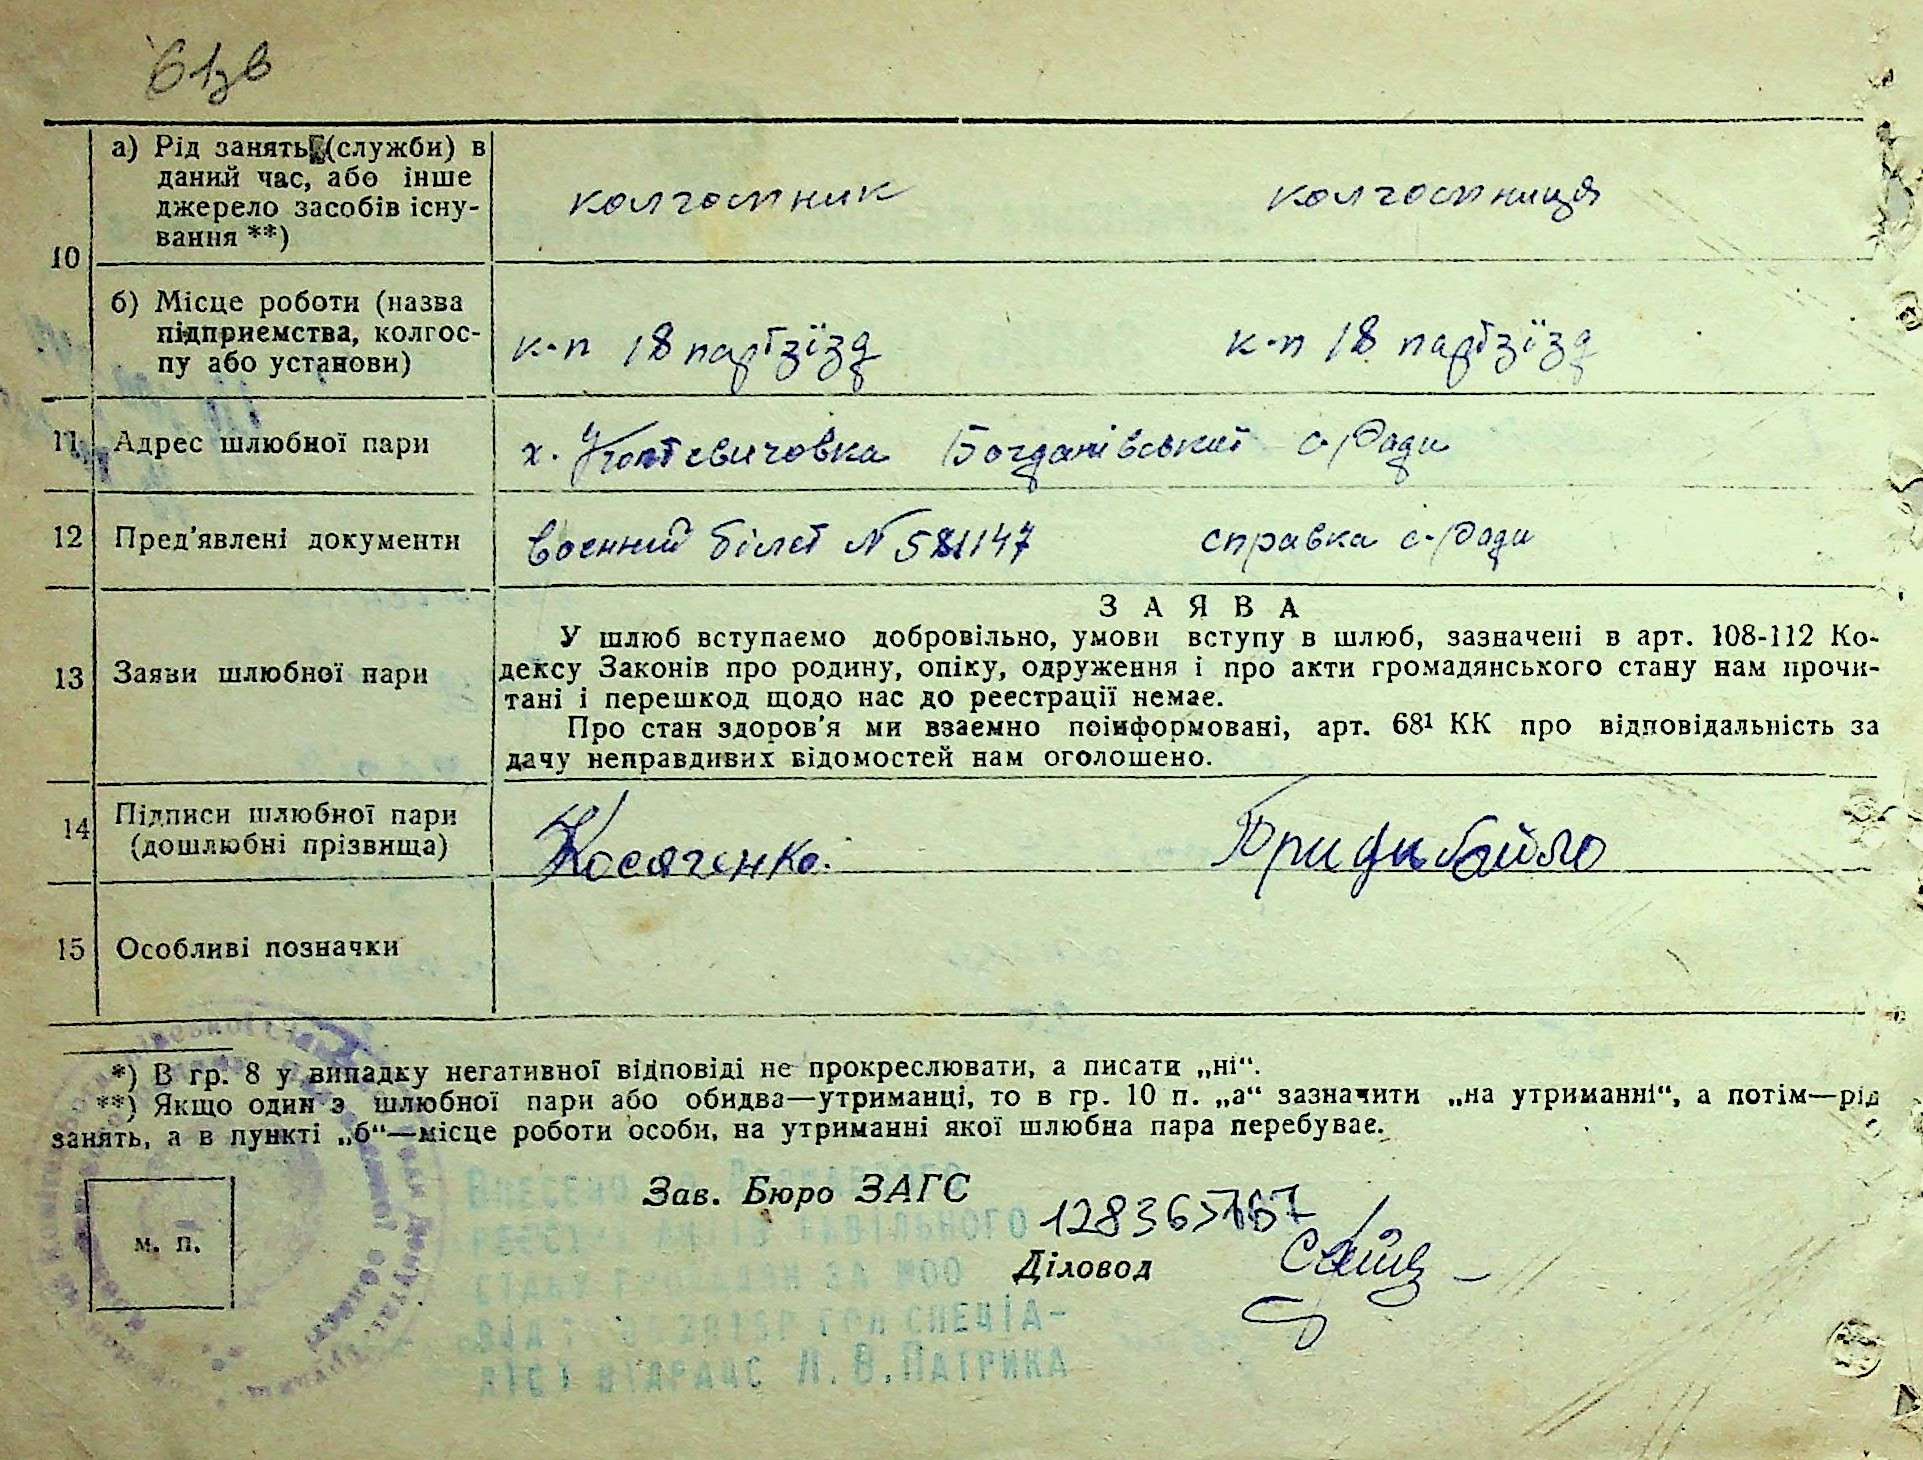 а) Рід занять (служби) в
даний час, або інше
джерело засобів існу-
вання **)
колгоспник колгоспниця
10
б) Місце роботи (назва
підприємства, колгос-
пу або установи)
к-п 18 партз'їзд к-п 18 партз'їзд
11 Адрес шлюбної пари х. Богданівської с/Ради
12 Пред'явлені документи воєнний білет № 581147 справка с-Ради
З А Я В А
У шлюб вступаємо добровільно, умови вступу в шлюб, зазначені в арт. 108-112 Ко-
13 Заяви шлюбної пари дексу Законів про родину, опіку, одруження і про акти громадянського стану нам прочи-
тані і перешкод щодо нас до реєстрації немає.
Про стан здоров'я ми взаємно поінформовані, арт. 68¹ КК про відповідальність за
дачу неправдивих відомостей нам оголошено.
14 Підписи шлюбної пари
(дошлюбні прізвища)
Косяченко. Придибайло
15 Особливі позначки
*) В гр. 8 у випадку негативної відповіді не прокреслювати, а писати „ні“.
**) Якщо один з шлюбної пари або обидва—утриманці, то в гр. 10 п. „а“ зазначити „на утриманні“, а потім—рід
занять, а в пункті „б“—місце роботи особи, на утриманні якої шлюбна пара перебуває.
Внесено до Державного
Зав. Бюро ЗАГС
реєстру актів цивільного
стану громадян за №00
Діловод
м. п.
спеціа-
ліст відрацс Л. В. Патрика